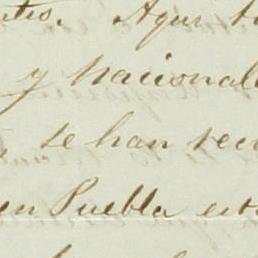 Aqui
y Nacional
se han reu
en Puebla est